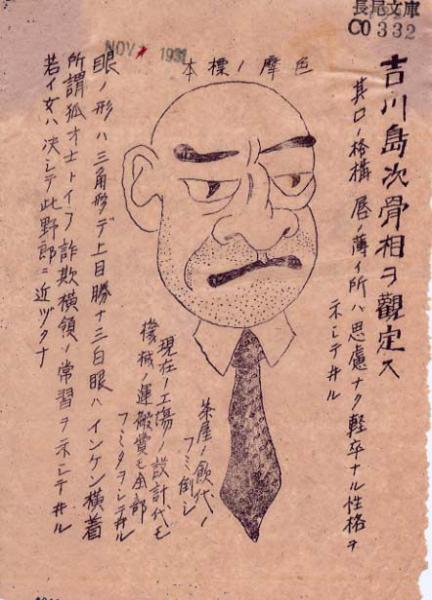 長尾文庫
C00332
NOV 1931
吉川島次骨相ヲ觀定ス
其口ノ格構唇ノ薄イ所ハ思慮ナク軽卒ナル性格ヲ
示シテ井ル
色摩ノ標本
茶屋ノ飲代ノ
フミ倒シ
現在ノ工場ノ設計代モ
機械ノ運搬賃モ全部
フミタヲシテ井ル
眼ノ形ハ三角形デ上目勝ナ三白眼ハインケン横着
所謂狐オ士トイフ詐欺横領ノ常習ヲ示シテ井ル
若イ女ハ決シテ此野郎ニ近ヅクナ